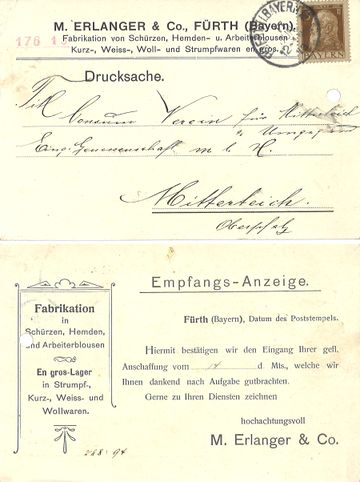 M. ERLANGER & Co., FÜRTH (Bayern),
Fabrikation von Schürzen, Hemden- u. Arbeiterblousen
Kurz-, Weiss-, Woll- und Strumpfwaren en gros.
176 15
BAYERN
Drucksache.
Consum Verein für Mitterteich
u. Umgegend
Eing. Genossenschaft m. b. H.
Mitterteich.
Oberpfalz
Empfangs-Anzeige.
Fabrikation
in
Schürzen, Hemden,
und Arbeiterblousen
En gros-Lager
in Strumpf-,
Kurz-, Weiss- und
Wollwaren.
Fürth (Bayern), Datum des Poststempels.
Hiermit bestätigen wir den Eingang Ihrer gefl.
Anschaffung vom 14 d Mts., welche wir
Ihnen dankend nach Aufgabe gutbrachten.
Gerne zu Ihren Diensten zeichnen
hochachtungsvoll
M. Erlanger & Co.
288.94